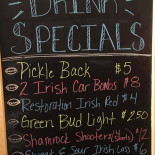 DRINK
SPECIALS
Pickle Back $5
2 Irish Car Bombs $8
Restoration Irish Red $4
Green Bud Light $250
Shamrock Shooters (Shots) $2
Sweet & Sour Irish Lass $6